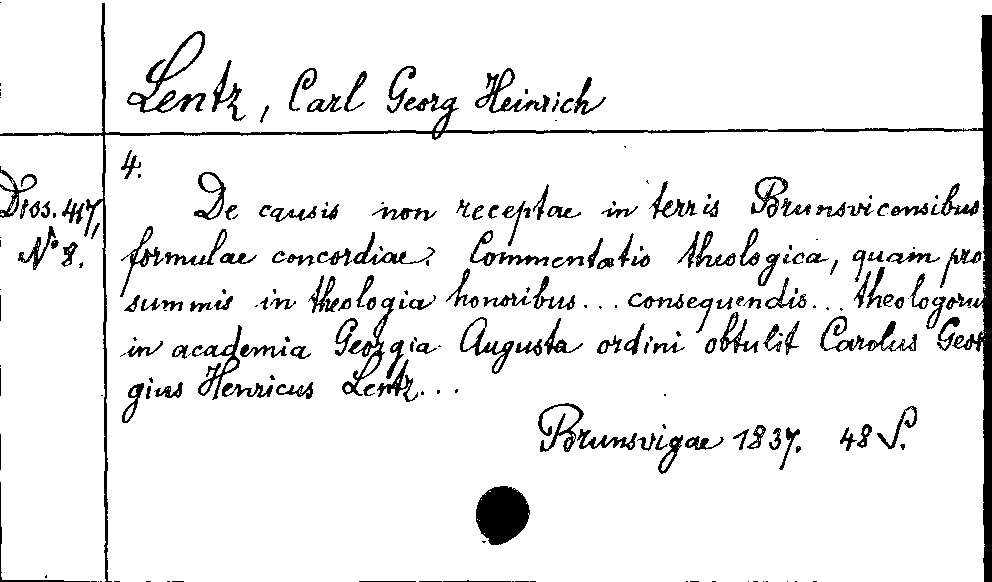 Lentz, Carl Georg Heinrich
4.
Diss. 417,
N° 8.
De causis non receptae in terris Brunsvicensibus
formulae concordiae. Commentatio theologica, quam pro
summis in theologia honoribus... consequendis... theologorum
in academia Georgia Augusta ordini obtulit Carolus Geor
gius Henricus Lentz...
Brunsvigae 1837. 48 S.